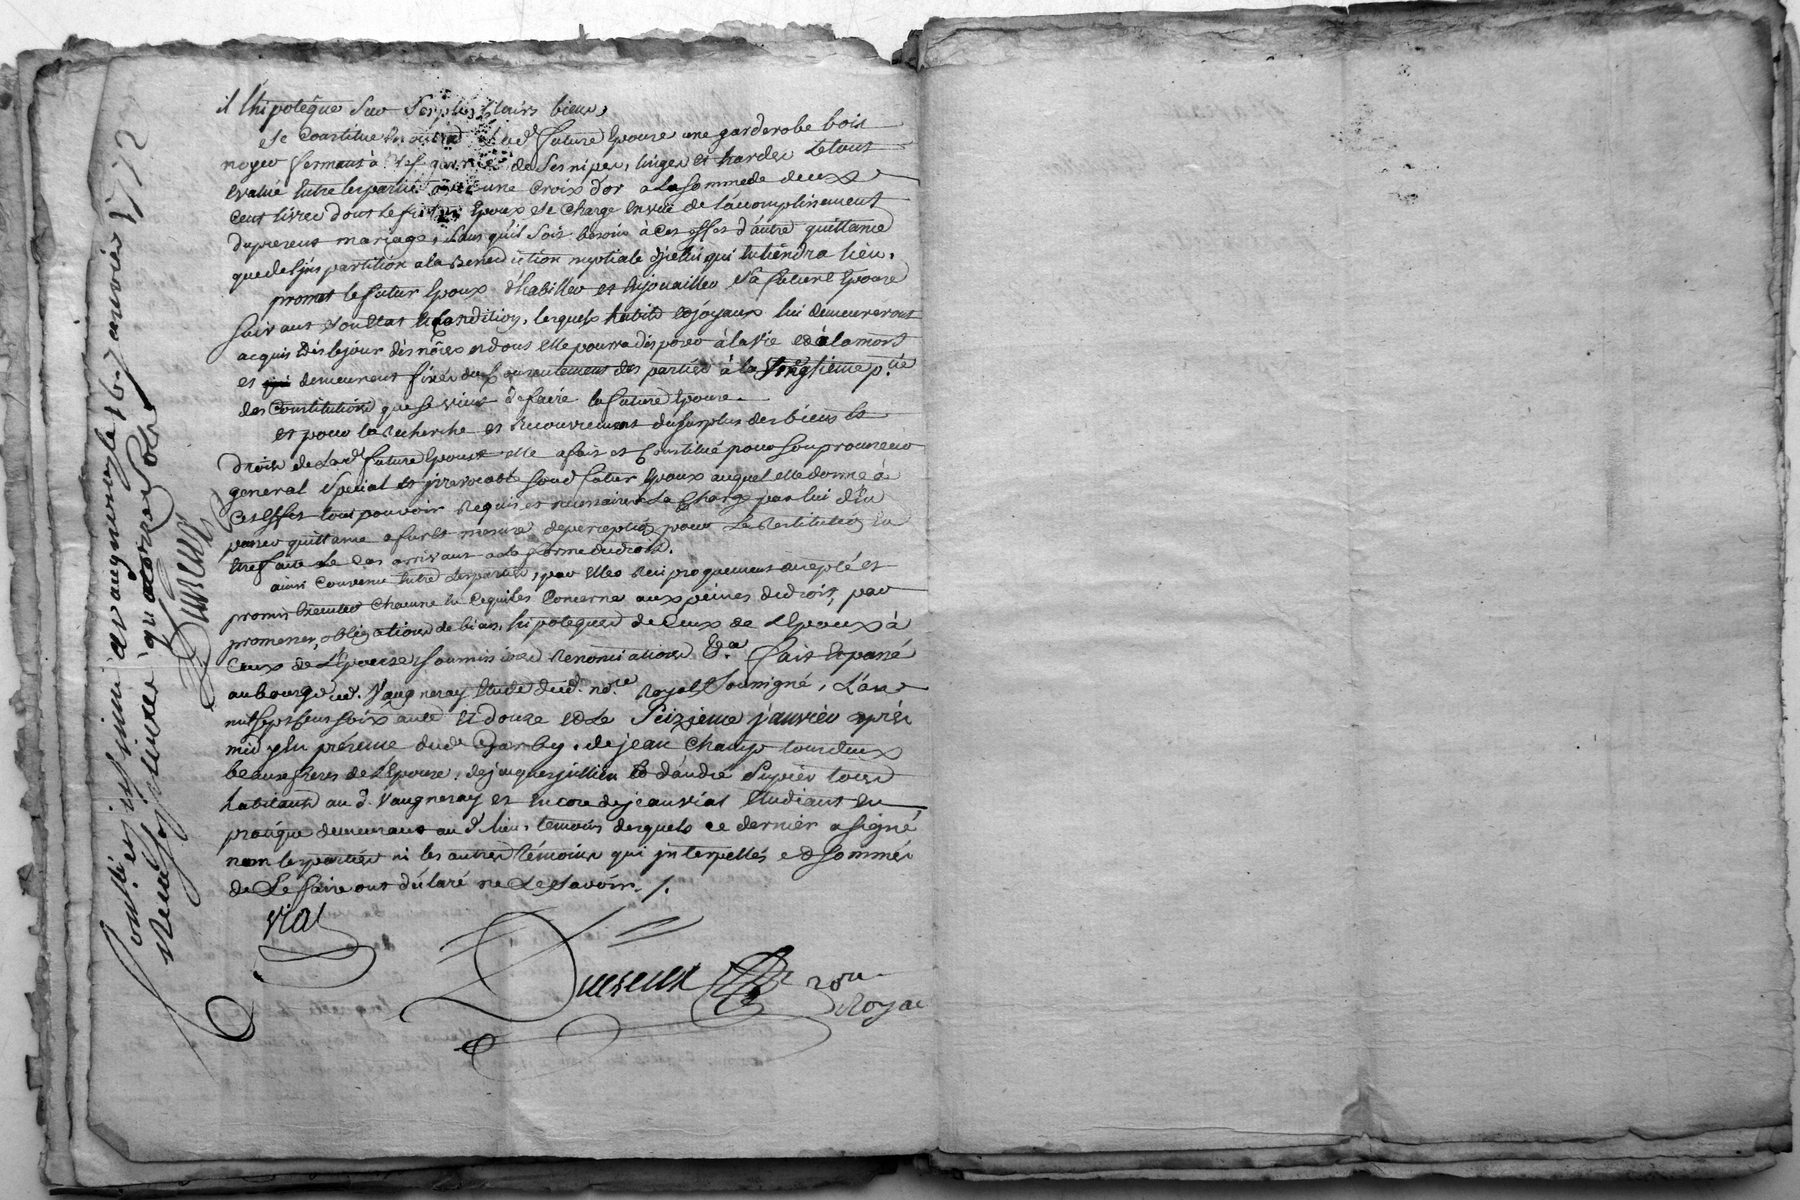 il hipoteque sur ses plus clairs biens,
se Constitue en outre lad. future Epouse une garderobe bois
noyer fermant à clef garnie de ses nipes, linges et hardes le tout
evalué entre les parties avec une Croix d'or a la somme de deux
cent livres dont le futur Epoux se charge en vue de l'acomplissement
du present mariage, sans qu'il soit besoin à cet effet d'autre quittance
que de l'in partition a la Benediction nuptiale d'jcelui qui en tiendra lieu.
promet le futur Epoux d'habiller et enjouailler sa future Epouse
suivant son Etat et Condition, lesquels habits et joyaux lui demeureront
acquis dès le jour des nôces et dont elle pourra disposer à la vie et à la mort
et demeurent fixés du Consentement des parties à la vingtieme p.tie
des Constitutions que se vient de faire la future Epouse.
et pour la Recherche et recouvrement du surplus des biens et
droits de lad. future Epouse elle a fait et Constitué pour son procureur
general special et jrrevocable sond. futur Epoux auquel elle donne à
cet effet tout pouvoir Requis et necessaire a la Charge par lui d'en
passer quittance a fur et mesure de perception pour la Restitution en
etre faite le Cas arrivant a la forme du droit.
ainsi Convenu entre les parties, par elles Reciproquement accepté et
promis executer chacune en ce qui les Concerne aux peines de droit, par
promesses, obligations de biens, hipoteques de Ceux de l'Epoux à
Ceux de l'Epouse soumissions Renonciations &a. fait et passé
au bourg dud. Vaugneray Etude dud. no.re Royal soussigné, L'an
mil sept cent soixante et douze et Le Seizieme janvier après
midy En présence dud. de jean Champ tous deux
beaux freres de l'Epouse, de jacques jullien et d'andré Supier tous
habitants aud. Vaugneray et encore de jean vial Etudiant en
pratique demeurant aud. lieu, temoins desquels ce dernier a signé
non les parties ni les autres témoins qui jnterpellés et sommés
de Le faire ont déclaré ne Le savoir. /.
Vial
Duvieux no.re
Royal
Cont.lé et insinué a Vaugneray le 16. janvier 1772
Reçu livres quatorze sols
Duvieux